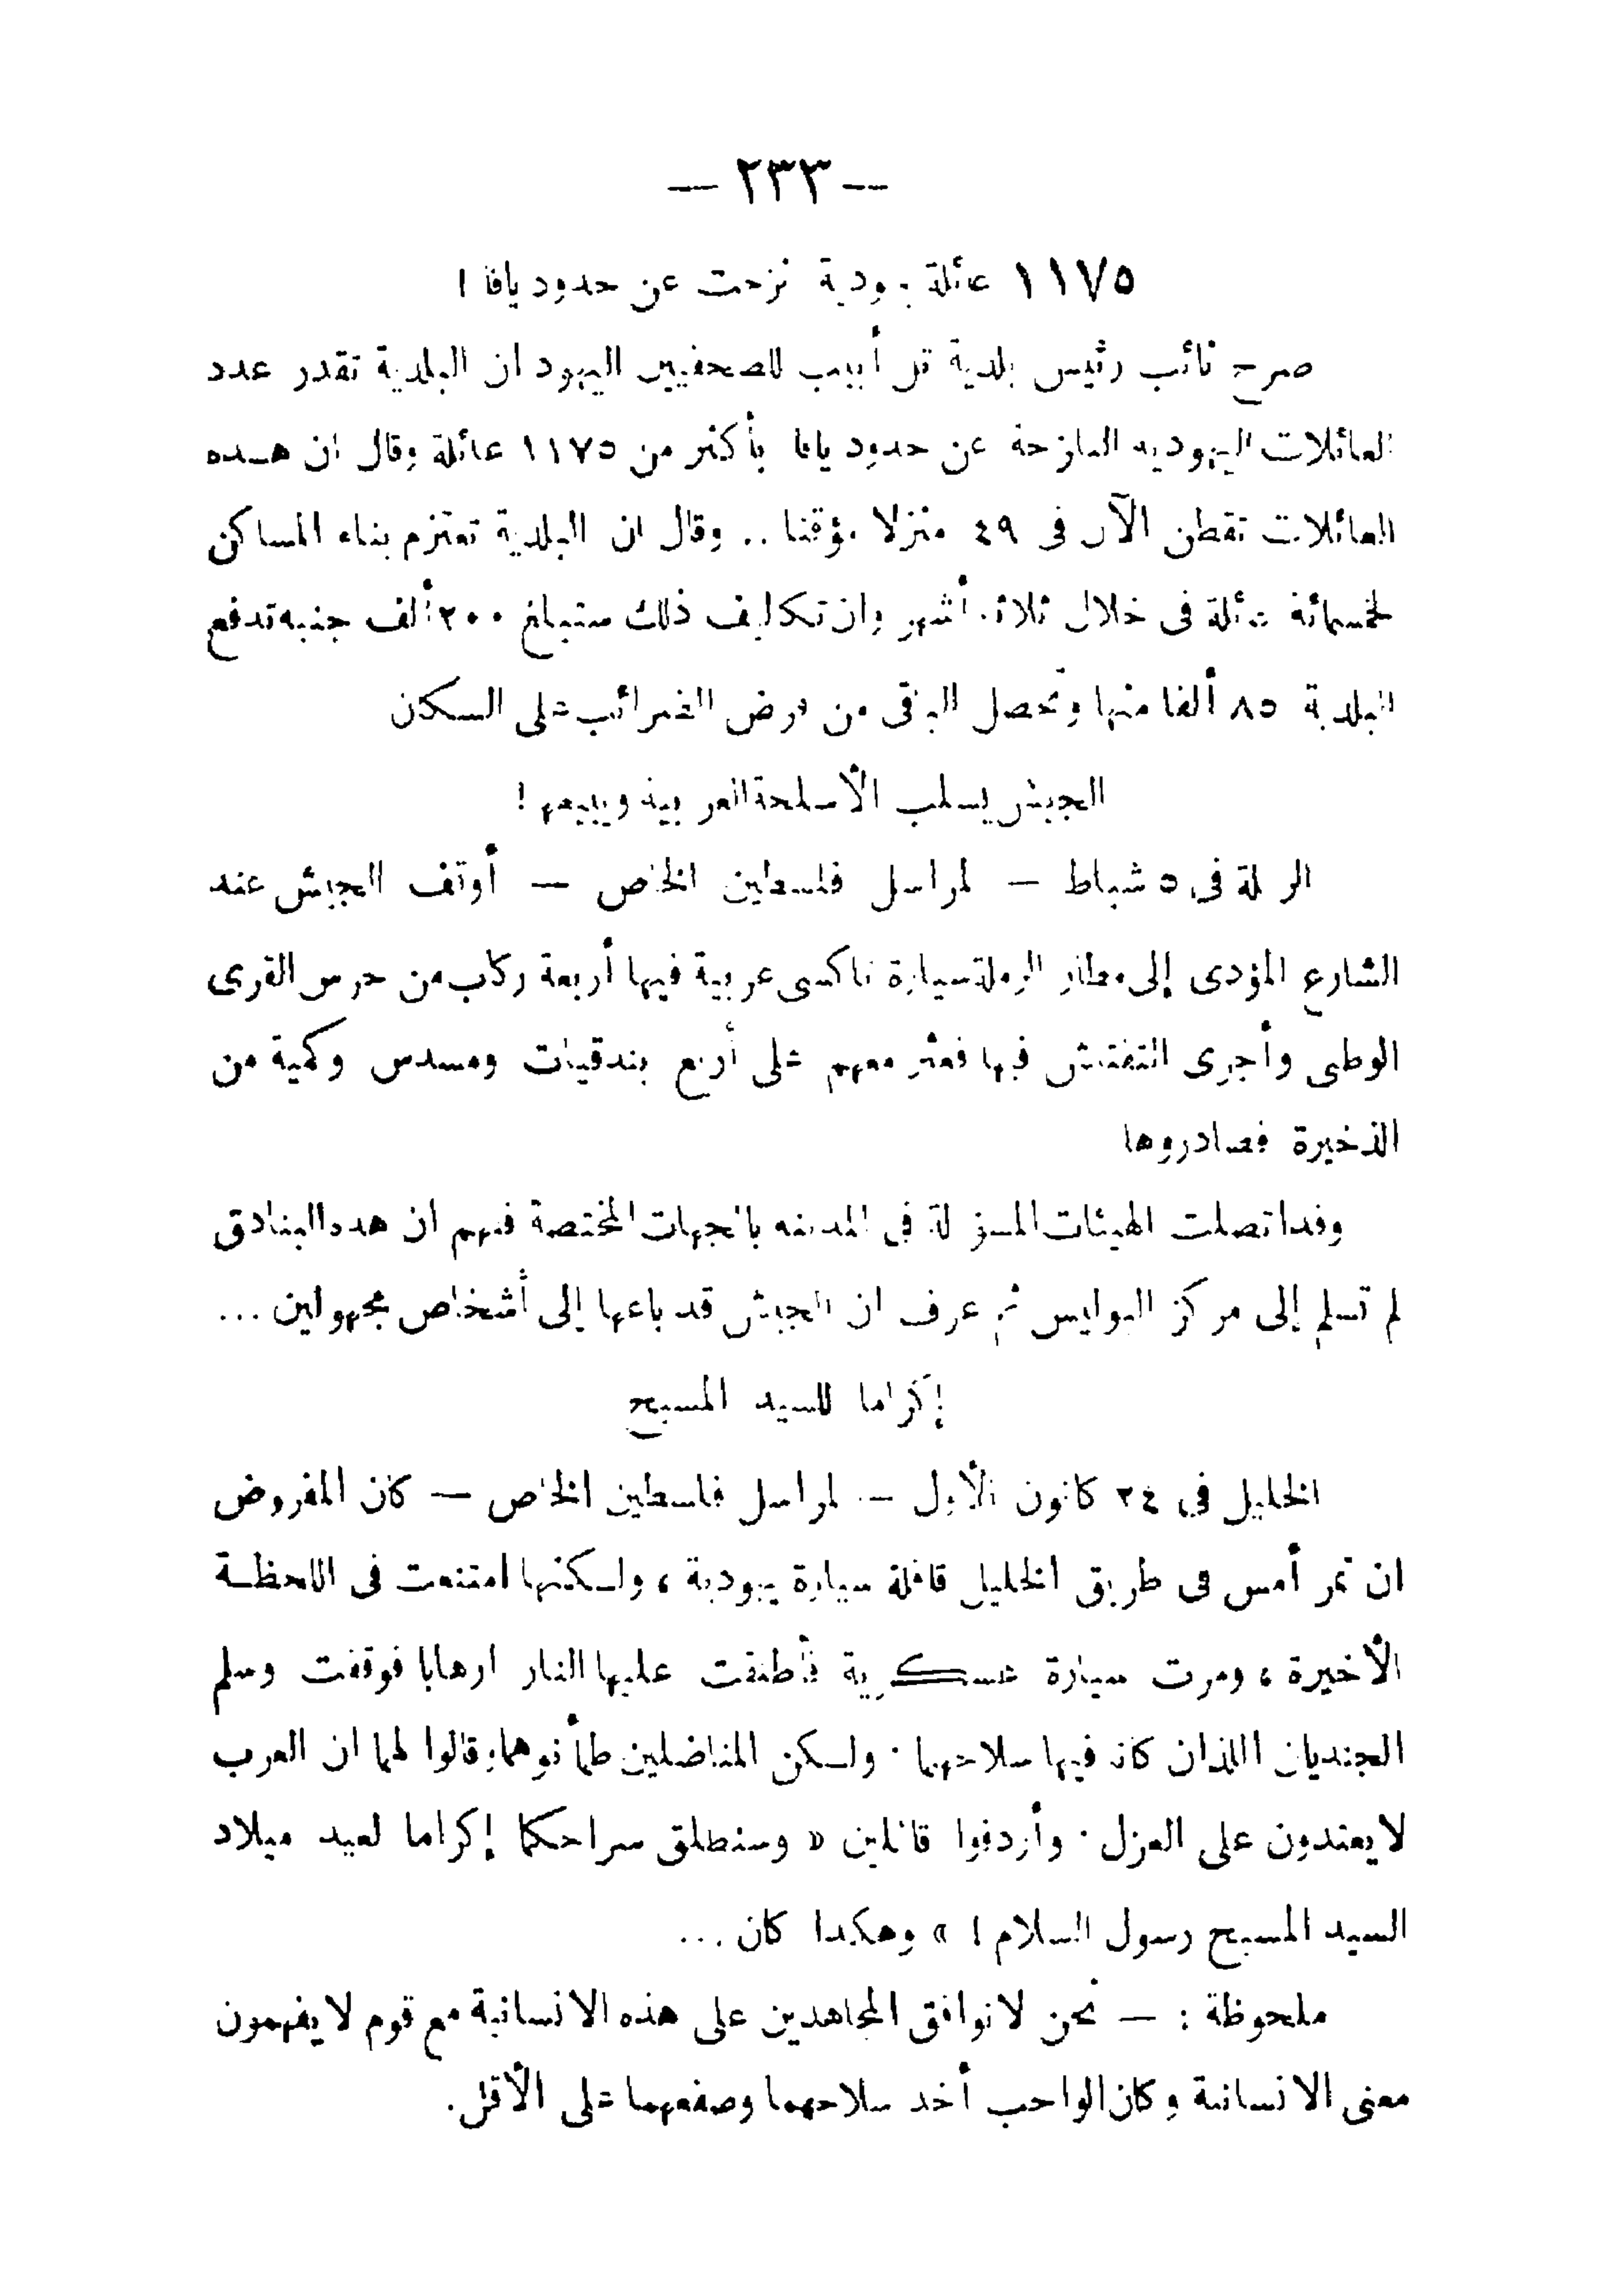 — ٢٣٣ —
١١٧٥ عائلة يهودية نزحت عن حدود يافا !
صرح نائب رئيس بلدية تل أبيب للصحفيين اليهود ان البلدية تقدر عدد
العائلات اليهودية النازحة عن حدود يافا بأكثر من ١١٧٥ عائلة وقال ان هــذه
العائلات تقطن الآن فى ٤٩ منزلا مؤقتا .. وقال ان البلدية تعتزم بناء المساكن
لخمسمائة عائلة فى خلال ثلاثة أشهر وان تكاليف ذلك ستبلغ ٢٠٠ ألف جنيه تدفع
البلدية ٨٥ ألفا منها وتحصل الباقى من فرض الضرائب على السكان
الجيش يسلب الأسلحة العربية ويبيعها !
الرملة فى ٥ شباط — لمراسل فلسطين الخاص — أوقف الجيش عند
الشارع المؤدى إلى مطار الرملة سيارة تاكسى عربية فيها أربعة ركاب من حرس القرى
الوطى وأجرى التفتيش فيها فعثر معهم على أربع بندقيات ومسدس وكمية من
الذخيرة فصادروها
وقد اتصلت الهيئات المسئولة فى المدينة بالجهات المختصة ففهم ان هذه البنادق
لم تسلم إلى مركز البوليس ثم عرف ان الجيش قد باعها إلى أشخاص مجهولين ...
إكراما للسيد المسيح
الخليل فى ٢٤ كانون الأول — لمراسل فلسطين الخاص — كان المفروض
ان تمر أمس فى طريق الخليل قافلة سيارة يهودية ، ولـكنها امتنعت فى اللحظـة
الأخيرة ، ومرت سيارة عسكرية فأطلقت عليها النار ارهابا فوقفت وسلم
الجنديان اللذان كانا فيها سلاحهما . ولـكن المناضلين طمأنوهما وقالوا لهما ان العرب
لا يعتدون على العزل . وأردفوا قائلين « وسنطلق سراحكما إكراما لعيد ميلاد
السيد المسيح رسول السلام ! » وهكذا كان ...
ملحوظة : — نحن لا نوافق المجاهدين على هذه الانسانية مع قوم لا يفهمون
معنى الانسانية وكان الواجب أخذ سلاحهما وصفعهما على الأقل .